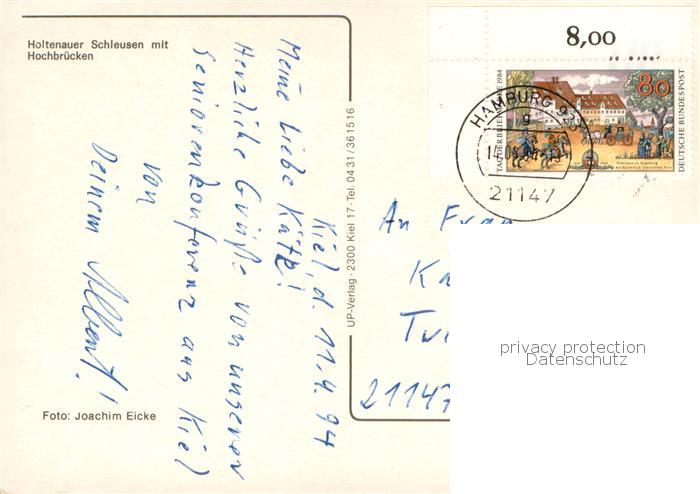 Holtenauer Schleusen mit
Hochbrücken
Kiel, d. 11.4.94
Meine liebe Käthe!
Herzliche Grüße von unserer
Seniorenkonferenz aus Kiel
von
Deinem Albert!
Foto: Joachim Eicke
UP-Verlag · 2300 Kiel 17 · Tel. 04 31 / 36 15 16
8,00
TAG DER BRIEFMARKE 1984
80
DEUTSCHE BUNDESPOST
HAMBURG
21147
An Frau
Ka
Twi
21147
privacy protection
Datenschutz